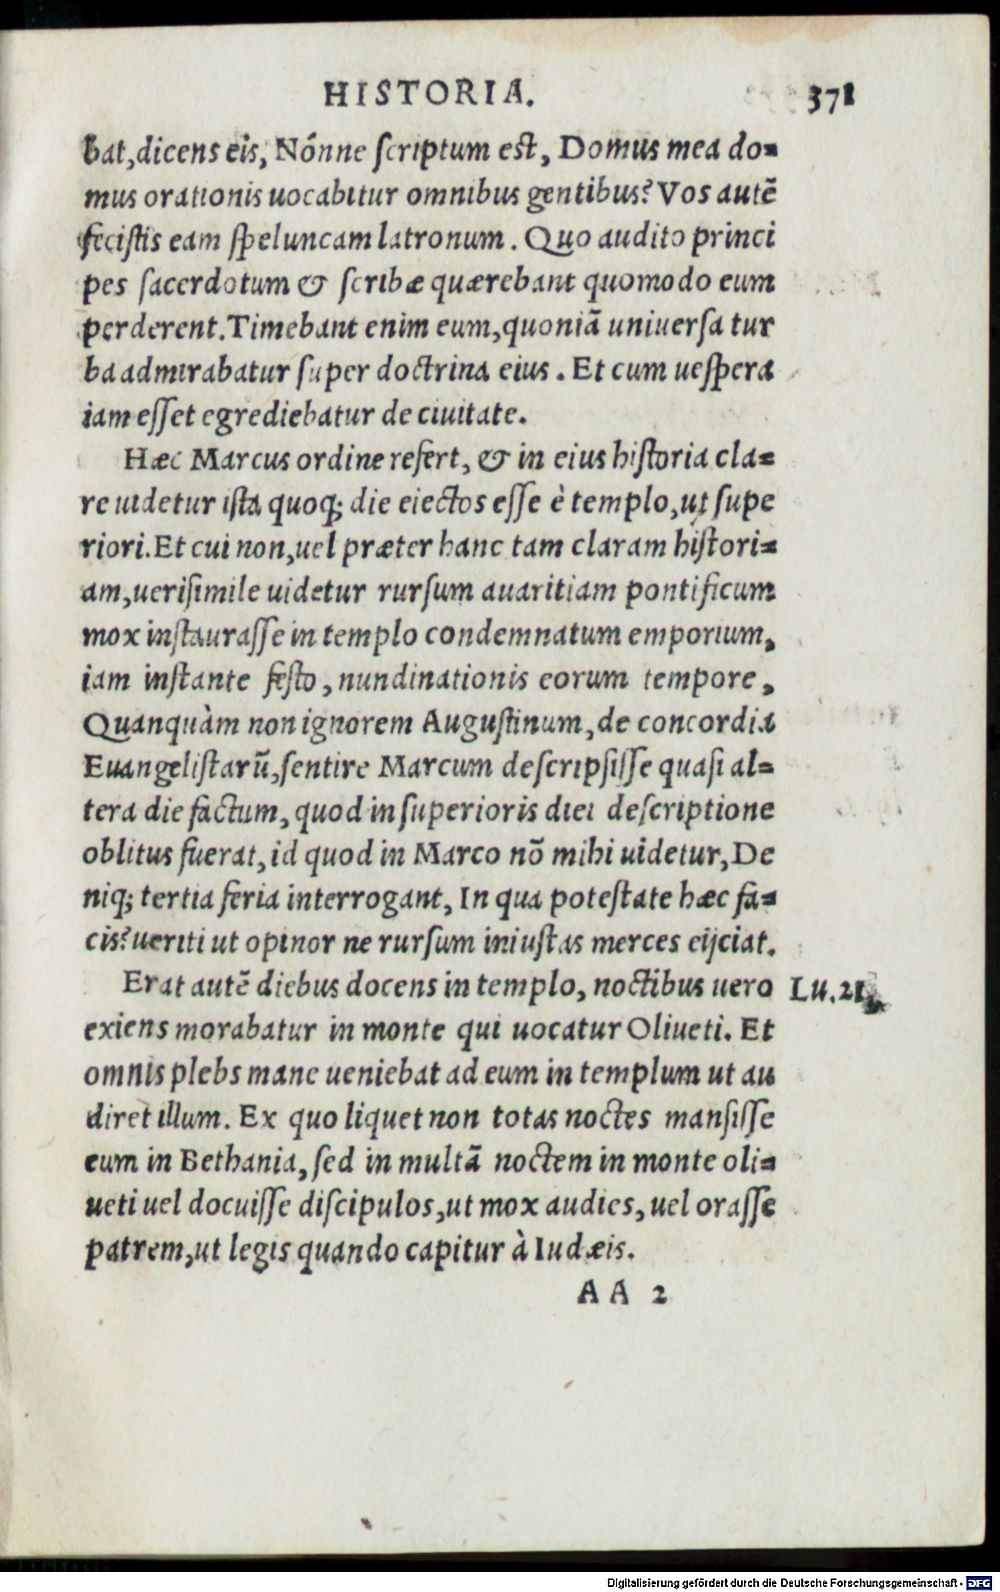 HISTORIA. 371
bat,dicens eis, Nónne scriptum est, Domus mea do=
mus orationis uocabitur omnibus gentibus? Vos autē
fecistis eam speluncam latronum. Quo audito princi
pes sacerdotum & scribæ quærebant quomodo eum
perderent.Timebant enim eum,quoniā uniuersa tur
ba admirabatur super doctrina eius. Et cum uespera
iam esset egrediebatur de ciuitate.
Hæc Marcus ordine refert, & in eius historia cla=
re uidetur ista quoq; die eiectos esse è templo,ut supe
riori.Et cui non,uel præter hanc tam claram histori=
am,uerisimile uidetur rursum auaritiam pontificum
mox instaurasse in templo condemnatum emporium,
iam instante festo, nundinationis eorum tempore,
Quanquàm non ignorem Augustinum,de concordia
Euangelistarū,sentire Marcum descripsisse quasi al=
tera die factum, quod in superioris diei descriptione
oblitus fuerat, id quod in Marco nō mihi uidetur, De
niq; tertia feria interrogant, In qua potestate hæc fa=
cis?ueriti ut opinor ne rursum iniustas merces eijciat.
Erat autē diebus docens in templo, noctibus uero Lu.21.
exiens morabatur in monte qui uocatur Oliueti. Et
omnis plebs mane ueniebat ad eum in templum ut au
diret illum. Ex quo liquet non totas noctes mansisse
eum in Bethania, sed in multā noctem in monte oli=
ueti uel docuisse discipulos,ut mox audies, uel orasse
patrem,ut legis quando capitur à Iudæis.
AA 2
Digitalisierung gefördert durch die Deutsche Forschungsgemeinschaft - DFG